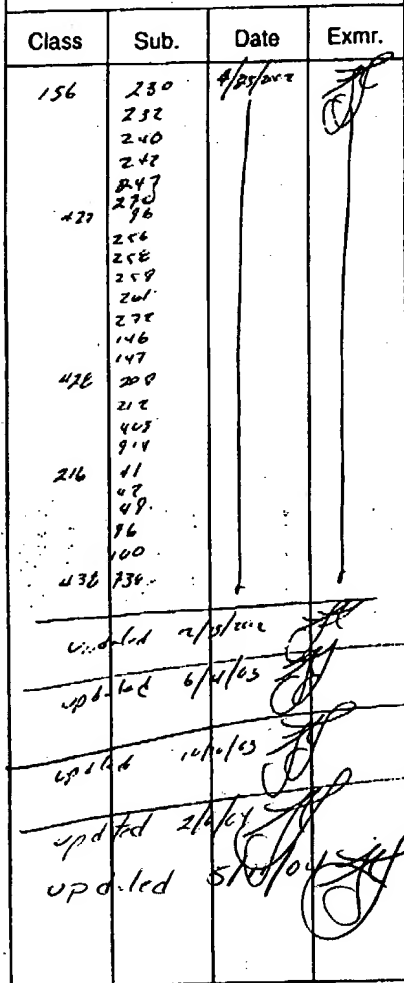 Class Sub. Date Exmr.
156 230 4/25/2002
232
240
242
247
270
427 96
256
258
258
261
272
146
147
428 208
212
409
914
216 41
42
49
96
100
438 736
updated 2/15/2002
updated 6/4/03
updated 10/10/03
updated 2/6/04
updated